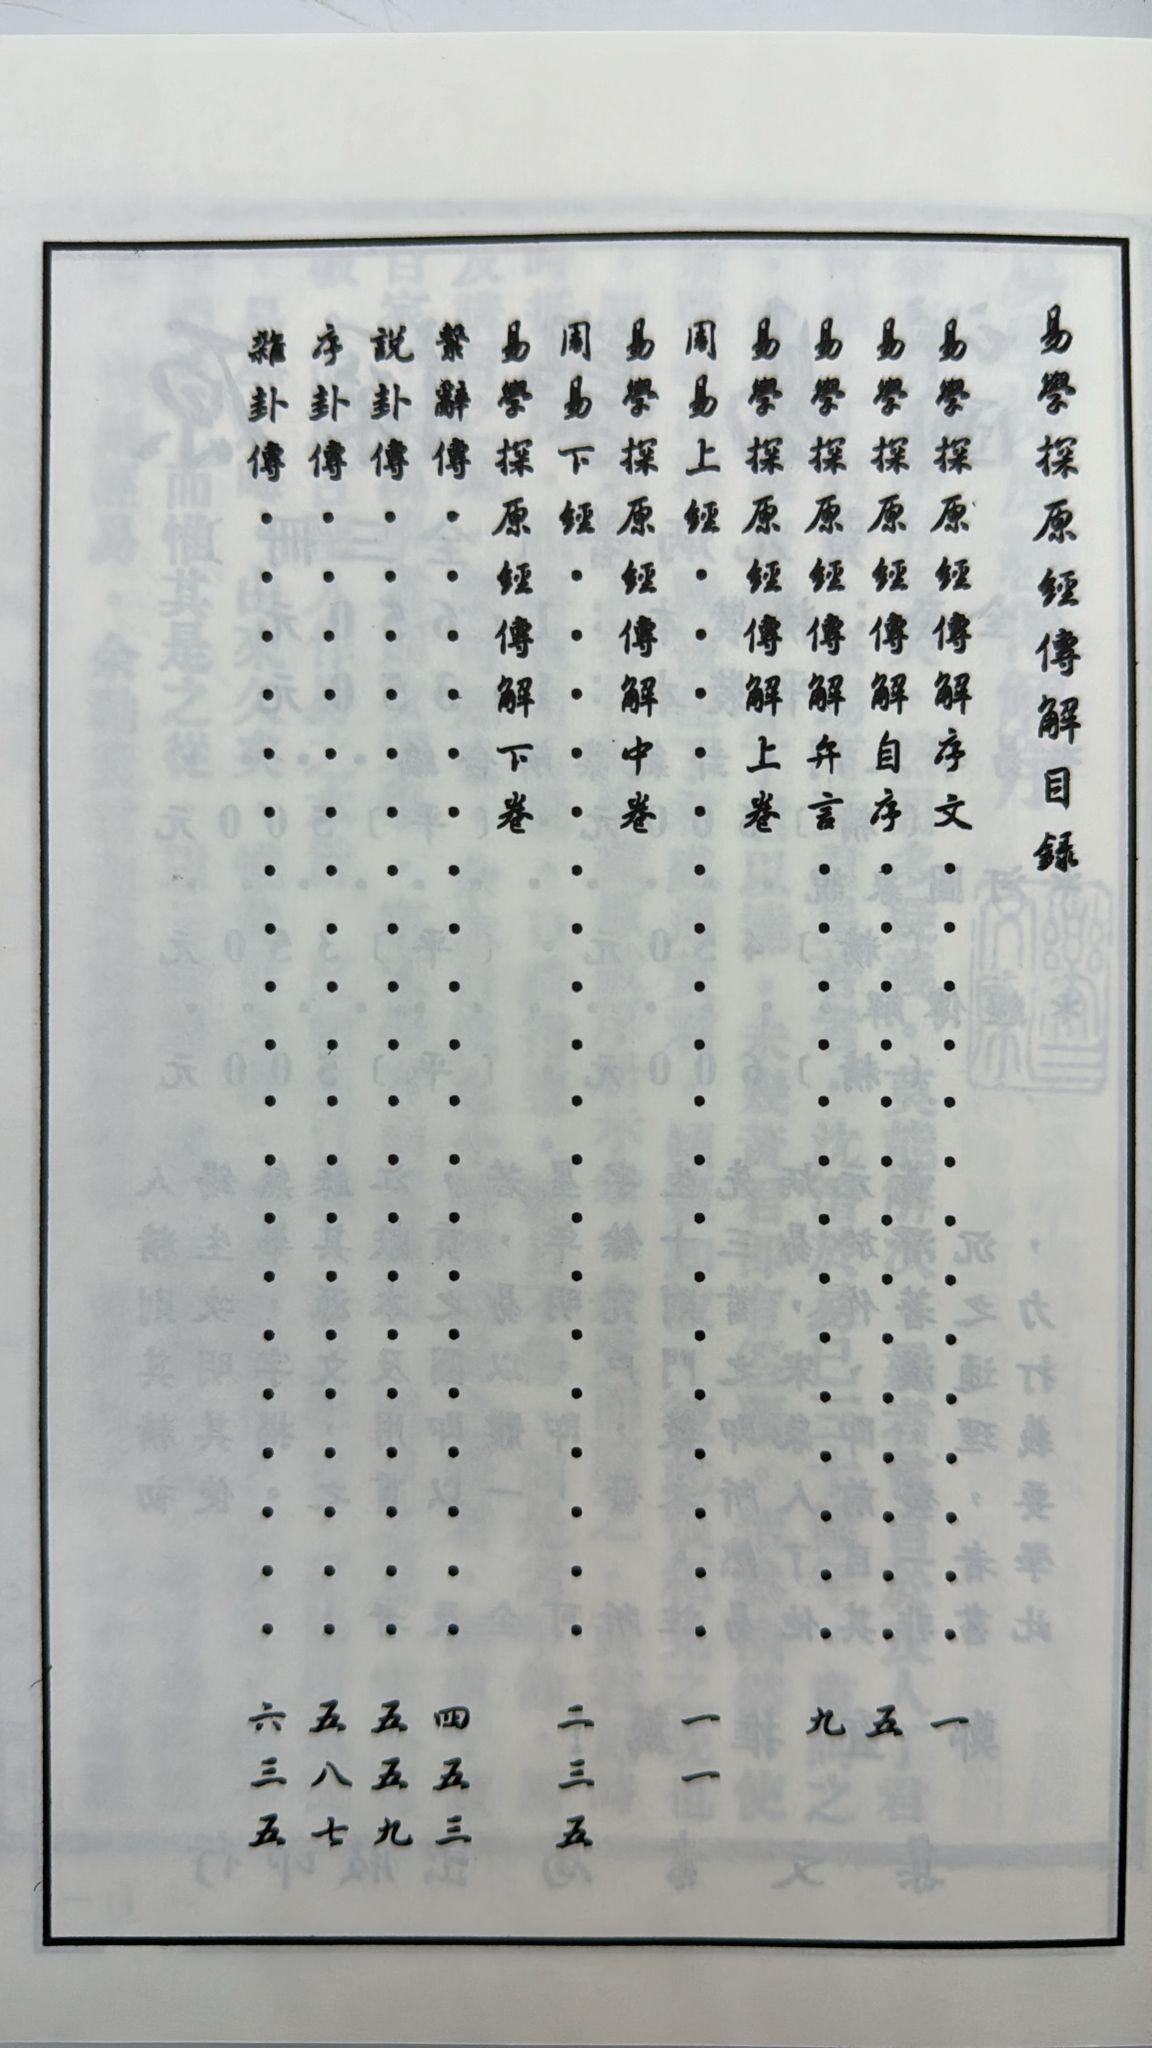 易學探原經傳解目録
易學探原經傳解序文····························一
易學探原經傳解自序····························五
易學探原經傳解弁言····························九
易學探原經傳解上卷
周易上經···················一一
易學探原經傳解中卷
周易下經···················二三五
易學探原經傳解下卷
繫辭傳····················四五三
說卦傳····················五五九
序卦傳····················五八七
雜卦傳····················六三五